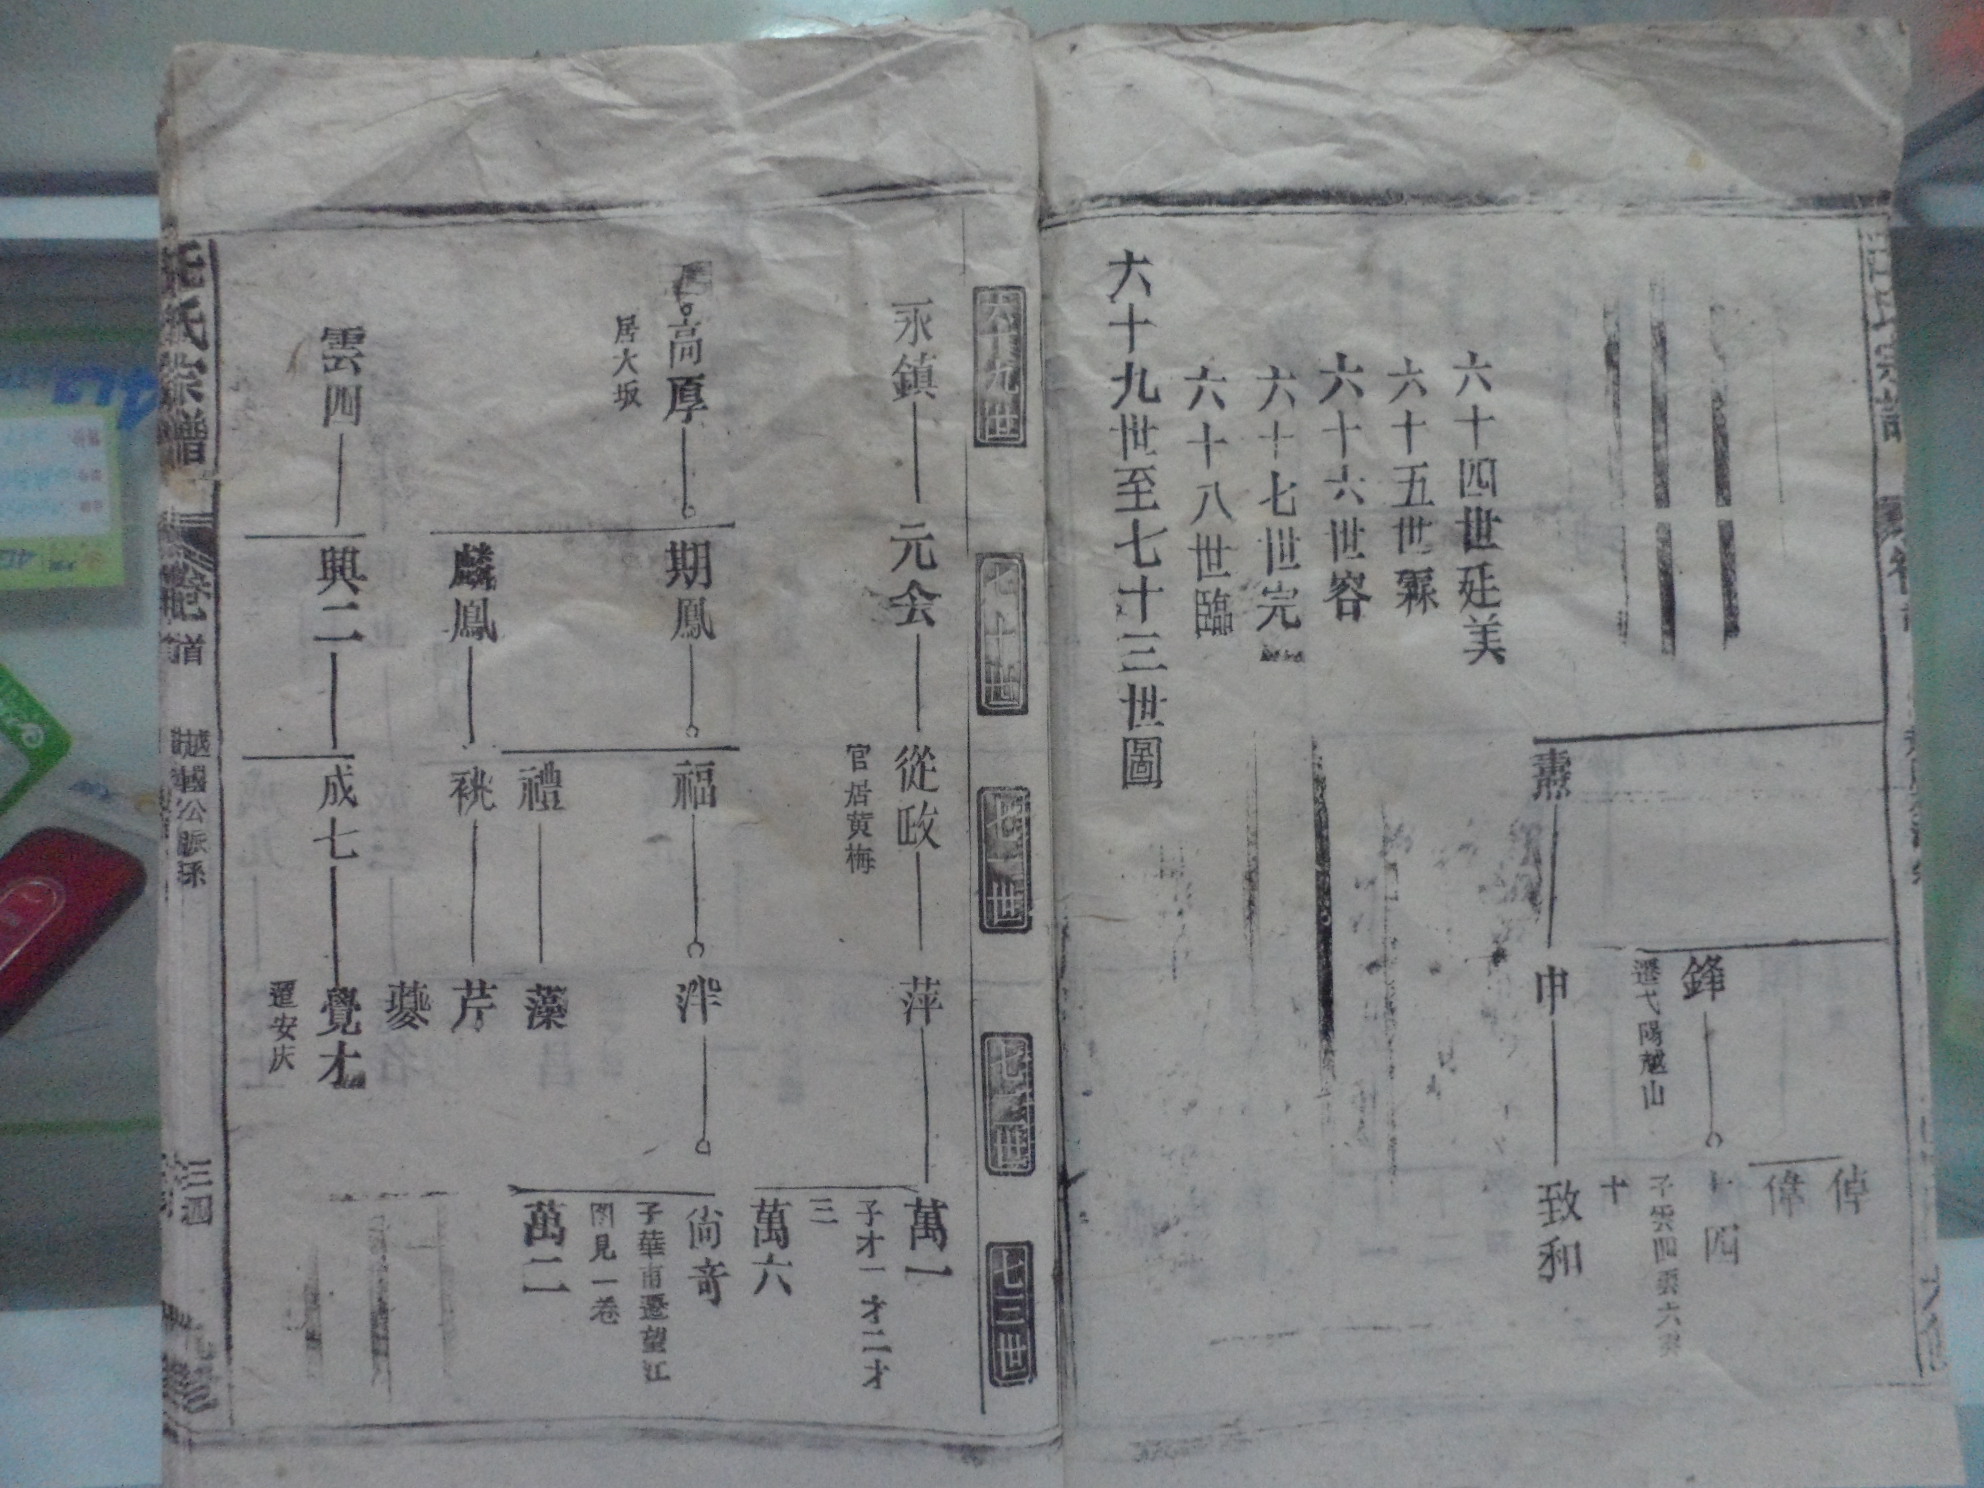 六十四世廷美
六十五世霖
六十六世容
六十七世完
六十八世臨
六十九世至七十三世圖
燾
申
致和
鋒
遷弋陽越山
四
子雲四雲六雲
十
倬
偉
六十九世
七十世
七一世
七二世
七三世
永鎮
元会
從政
官居黄梅
萍
萬一
子才一才二才
三
萬六
高厚
居大坂
期鳳
福
泮
尚竒
子華甫遷望江
圖見一卷
萬二
禮
藻
麟鳳
祧
芹
雲四
興二
成七
覺才
遷安庆
氏宗譜
卷
首
越國公脈系
三四